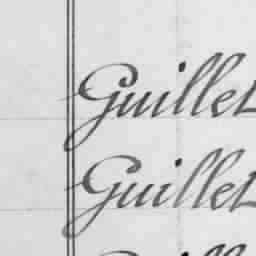 Guillet
Guillet